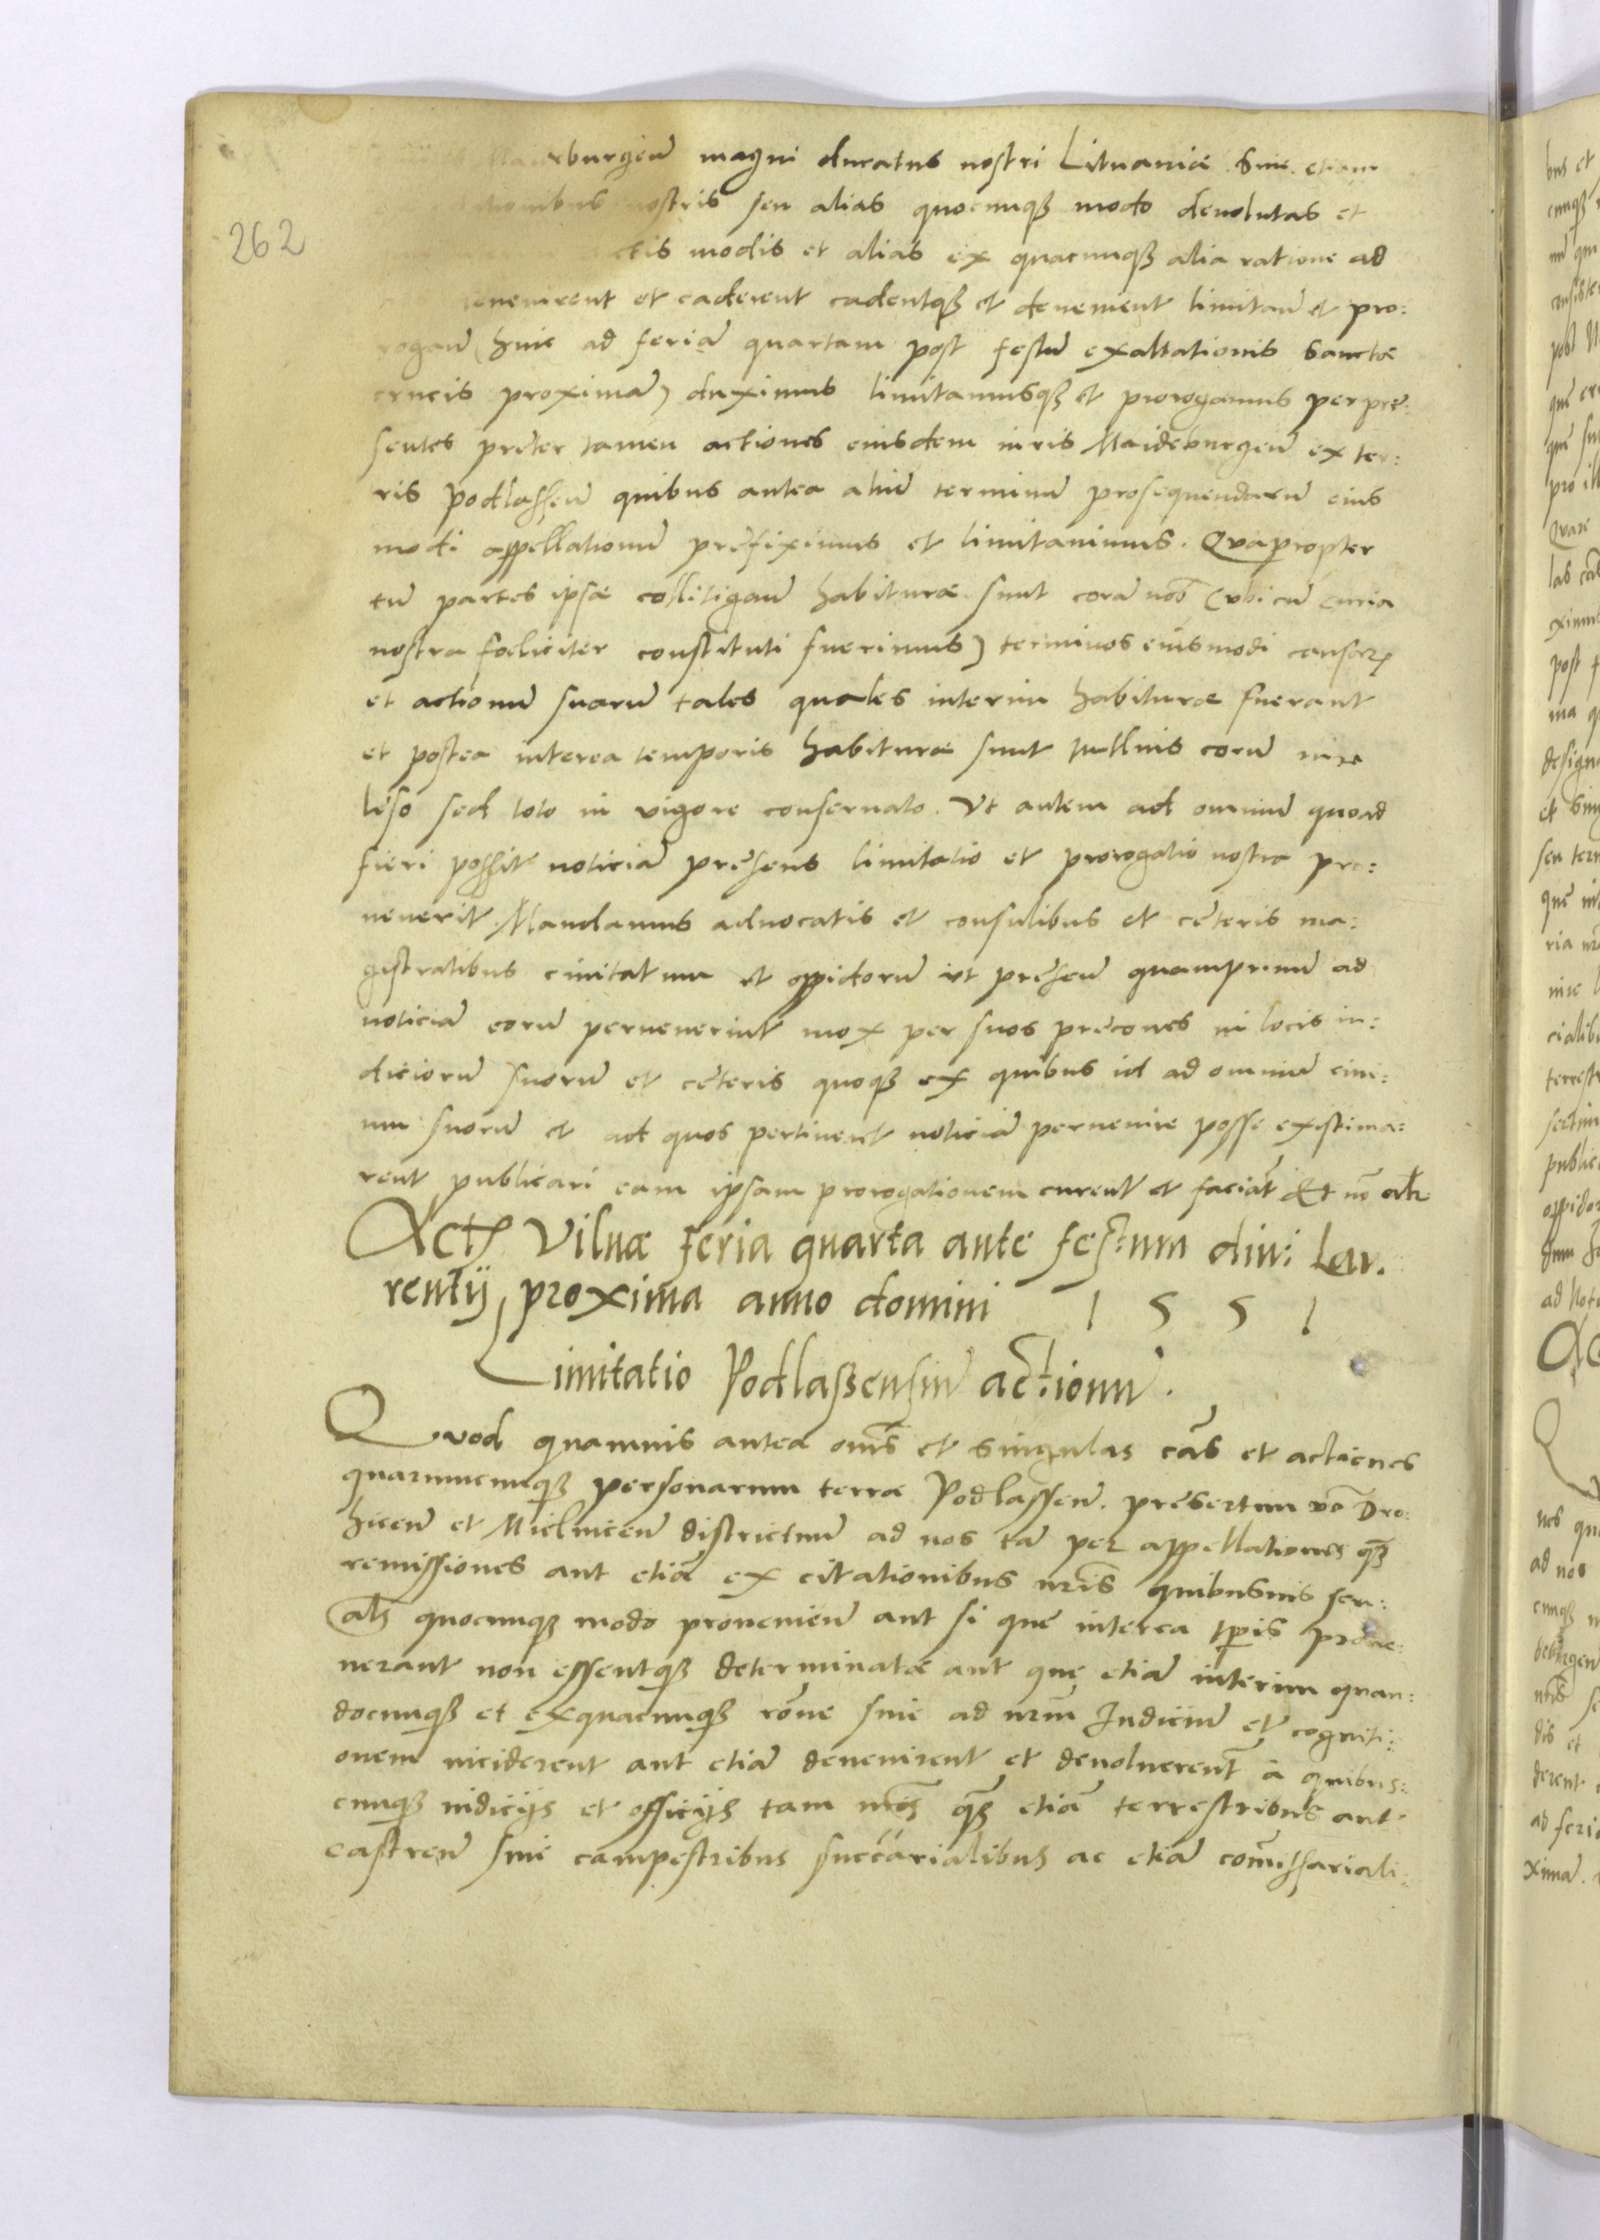 262
magni ducatus nostri Lituaniæ Siue etiam
nostris seu alias quocunq̃ modo deuolutas et
modis et alias ex quacunq̃ alia ratione ad
et caderent cadentq̃ et deuenient limitan̄ et pro:
rogan̄ (hinc ad feriā quartam post festū exaltationis Sanctæ
crucis proximā) duximus limitamusq̃ et prorogamus per pre:
sentes preter tamen actiones eiusdem iuris Maideburgen̄ ex ter:
ris Podlassen̄ quibus antea aliū terminū prosequendarū eius
modi appellationū prefiximus et limitauimus. Quapropter
tū partes ipsæ collitigan̄ habituræ sunt corā nōb (vbi cū curia
nostra fœliciter constituti fuerimus) terminos eiusmodi causarꝝ
et actionū suarū tales quales interim habituræ fuerant
et postea interea temporis habituræ sunt nullius eorū iure
leso sed toto in vigore conseruato. Vt autem ad omniū quoad
fieri possit noticiā presens limitatio et prorogatio nostra pro:
uenerit. Mandamus aduocatis et consulibus et ceteris ma:
gistratibus ciuitatum et oppidorū ut presen̄ quamprimū ad
noticiā eorū peruenerint mox per suos precones in locis iu:
diciorū suorū et ceteris quoq̃ ex quibus id ad omniū ciui:
um suorū et ad quos pertinent noticiā peruenire posse existima:
rent publicari eam ipsam prorogationem curent et faciāt Et nō alr̃
Actꝝ Vilnæ feria quarta ante festum diui Lau.
rentij proxima anno domini 1 5 5 1
Limitatio Podlassensiū actionū.
Quod quamuis antea om̄s et singulas cās et actiones
quarumcunq̃ personarum terræ Podlassen̄. presertim vō Dro:
hicen̄ et Mielnicen̄ districtuū ad nos tā per appellationes q̃ȝ
remissiones aut etiā ex citationibus nr̄is quibusuis seu:
als quocunq̃ modo prouenien̄ aut si que interea tp̄is proue:
nerant non essentq̃ determinatæ aut que etiā interim quan:
docunq̃ et exquacunq̃ rōne siue ad nr̄m Iudiciū et cogniti:
onem inciderent aut etiā deuenirent et deuoluerent̄ à quibus:
cunq̃ iudicijs et officijs tam nr̄is q̃ȝ etiā terrestribus aut
castren̄ siue campestribus succārialibus ac etiā com̄issariali: